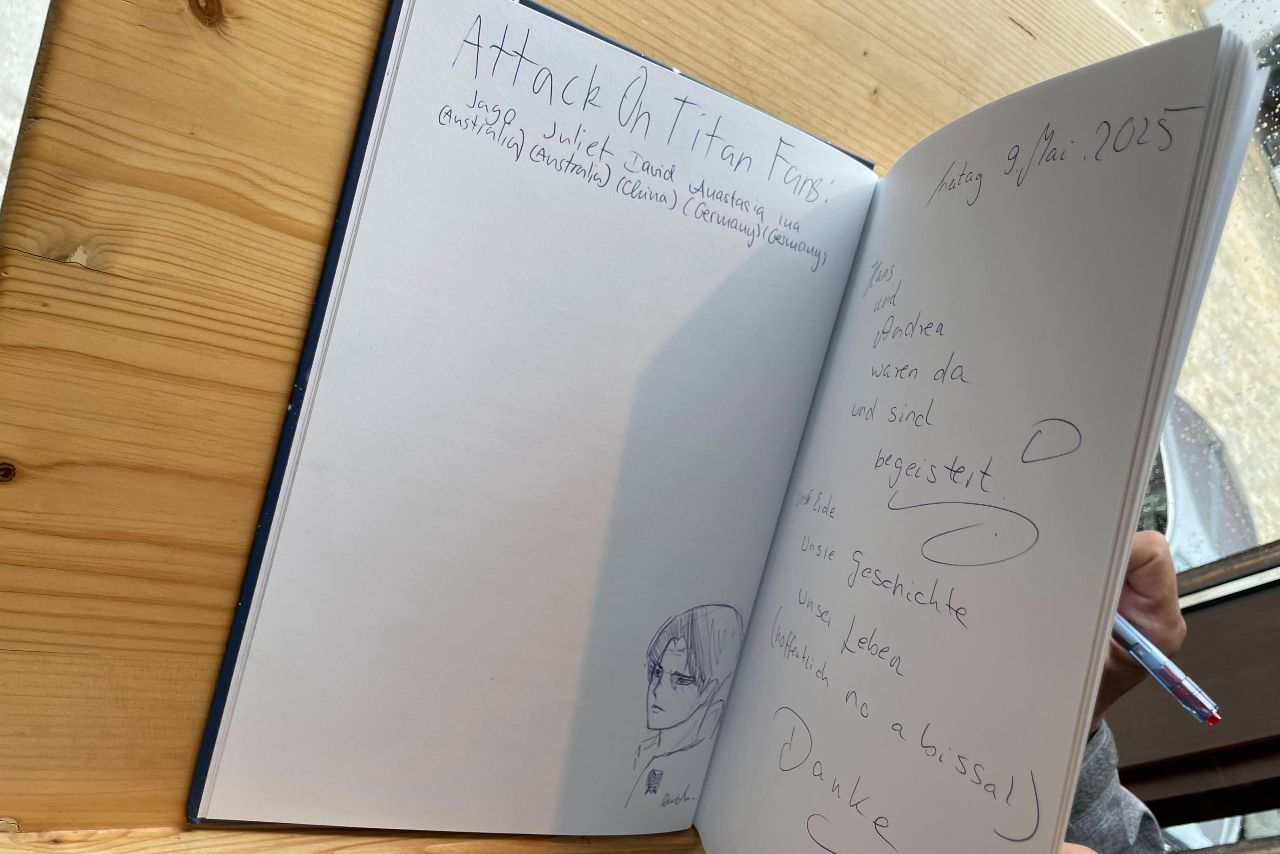 Attack On Titan Fans:
Jago Juliet David Anastasia ina
(Australia) (Australia) (China) (Germany) (Germany)
Freitag 9. Mai. 2025
Hans
und
Andrea
waren da
und sind
begeistert.
unsre Erde
unsre Geschichte
unser Leben
(hoffentlich no a bissal)
Danke